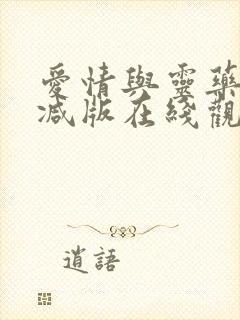 愛情與靈藥
減版在綫觀
逍語